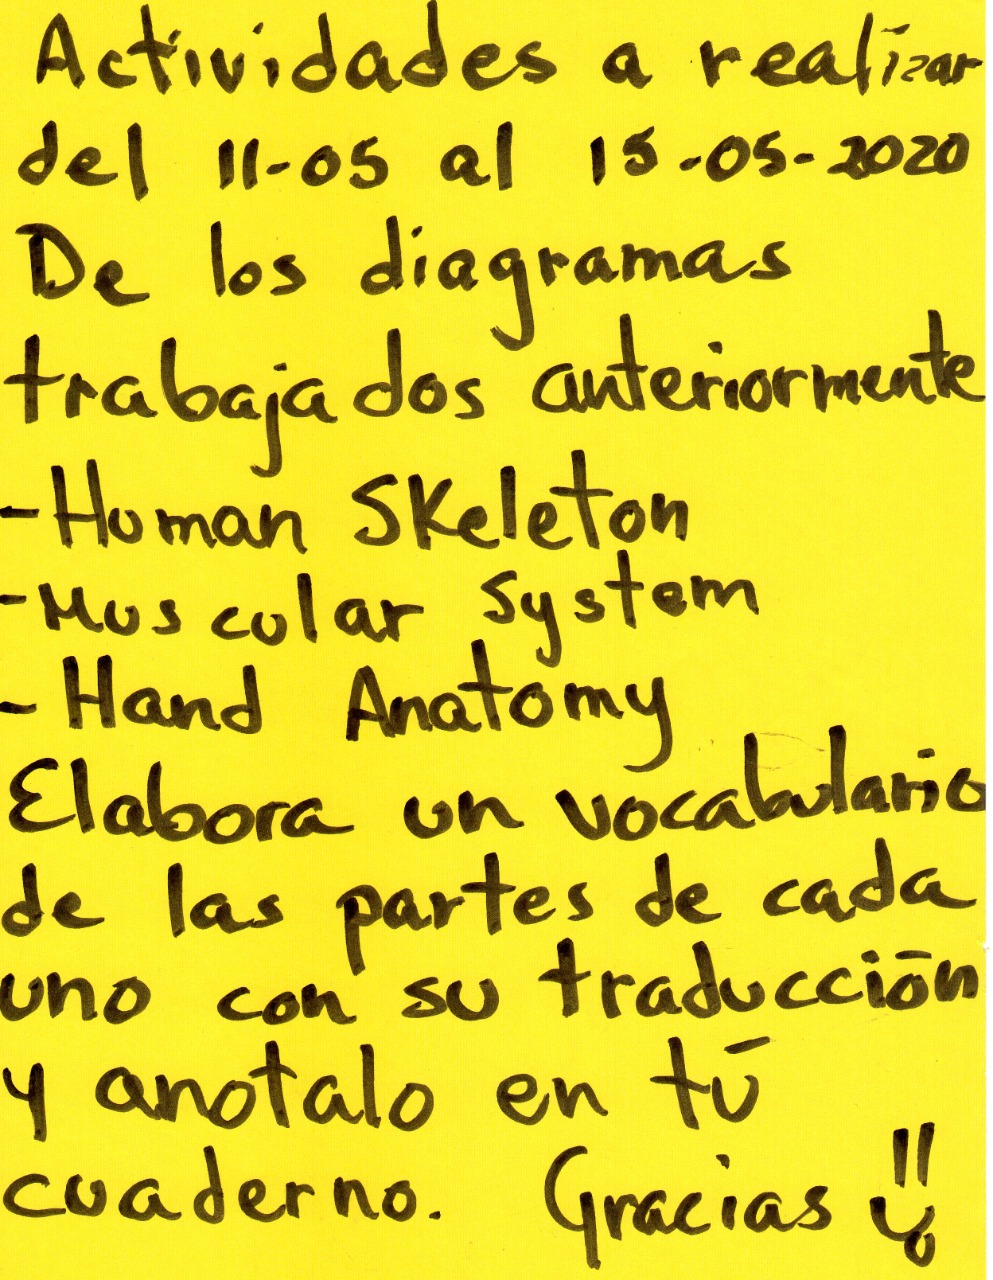 Actividades a realizar
del 11-05 al 15-05-2020
De los diagramas
trabajados anteriormente
-Human Skeleton
-Muscular System
-Hand Anatomy
Elabora un vocabulario
de las partes de cada
uno con su traducción
y anotalo en tú
cuaderno. Gracias